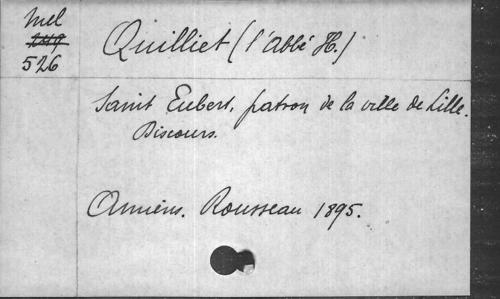 Mel
249
526
Quilliet (l'abbé H.)
Saint Eubert, patron de la ville de Lille.
Discours.
Amiens. Rousseau 1895.